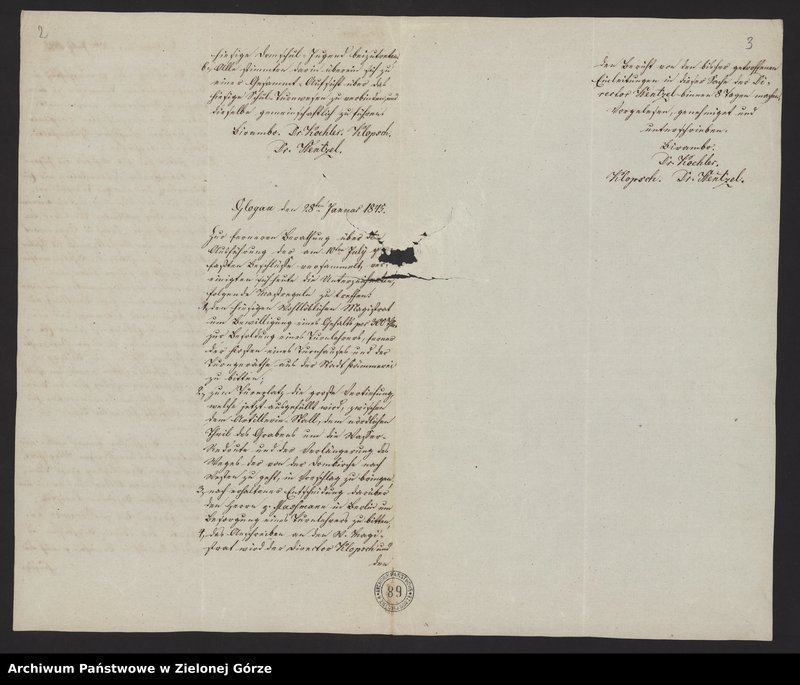 2
hiesige Domschul-Jugend beizutreten.
6, Alle stimmten darin überein sich zu
einer Gesammt-Aufsicht über das
hiesige Schul-Turnwesen zu verbinden und
dieselbe gemeinschaftlich zu führen.
Birambo. Dr. Koehler. Klopsch.
Dr. Wentzel.
Glogau den 28ten Januar 1845.
Zur ferneren Berathung über die
Ausführung der am 10ten July
faßten Beschlüsse versammelt, ver-
einigten sich heute die Unterzeichneten,
folgende Maßregeln zu treffen:
1, den hiesigen Wohllöblichen Magistrat
um Bewilligung eines Gehalts per 300
zur Besoldung eines Turnlehrers, ferner
der Kosten eines Turnhauses und der
Turngeräthe aus der Stadt Kämmerei
zu bitten;
2, zum Turnplatz die große Vertiefung,
welche jetzt ausgefüllt wird, zwischen
dem Artillerie-Stall, dem nördlichen
Theil des Grabens um die Wasser-
Redoute und der Verlängerung des
Weges der von der Domkirche nach
Westen zu geht, in Vorschlag zu bringen,
3, nach erhaltener Entscheidung darüber
den Herrn p. Massmann in Berlin um
Besorgung eines Turnlehrers zu bitten.
4, das Anschreiben an den W. Magi-
strat wird der Director Klopsch und
den
3
den Bericht von den bisher getroffenen
Einleitungen in dieser Sache der Di-
rector Wentzel binnen 8 Tagen machen.
Vorgelesen, genehmiget und
unterschrieben.
Birambo.
Dr. Koehler.
Klopsch. Dr. Wentzel.
89
Archiwum Państwowe w Zielonej Górze